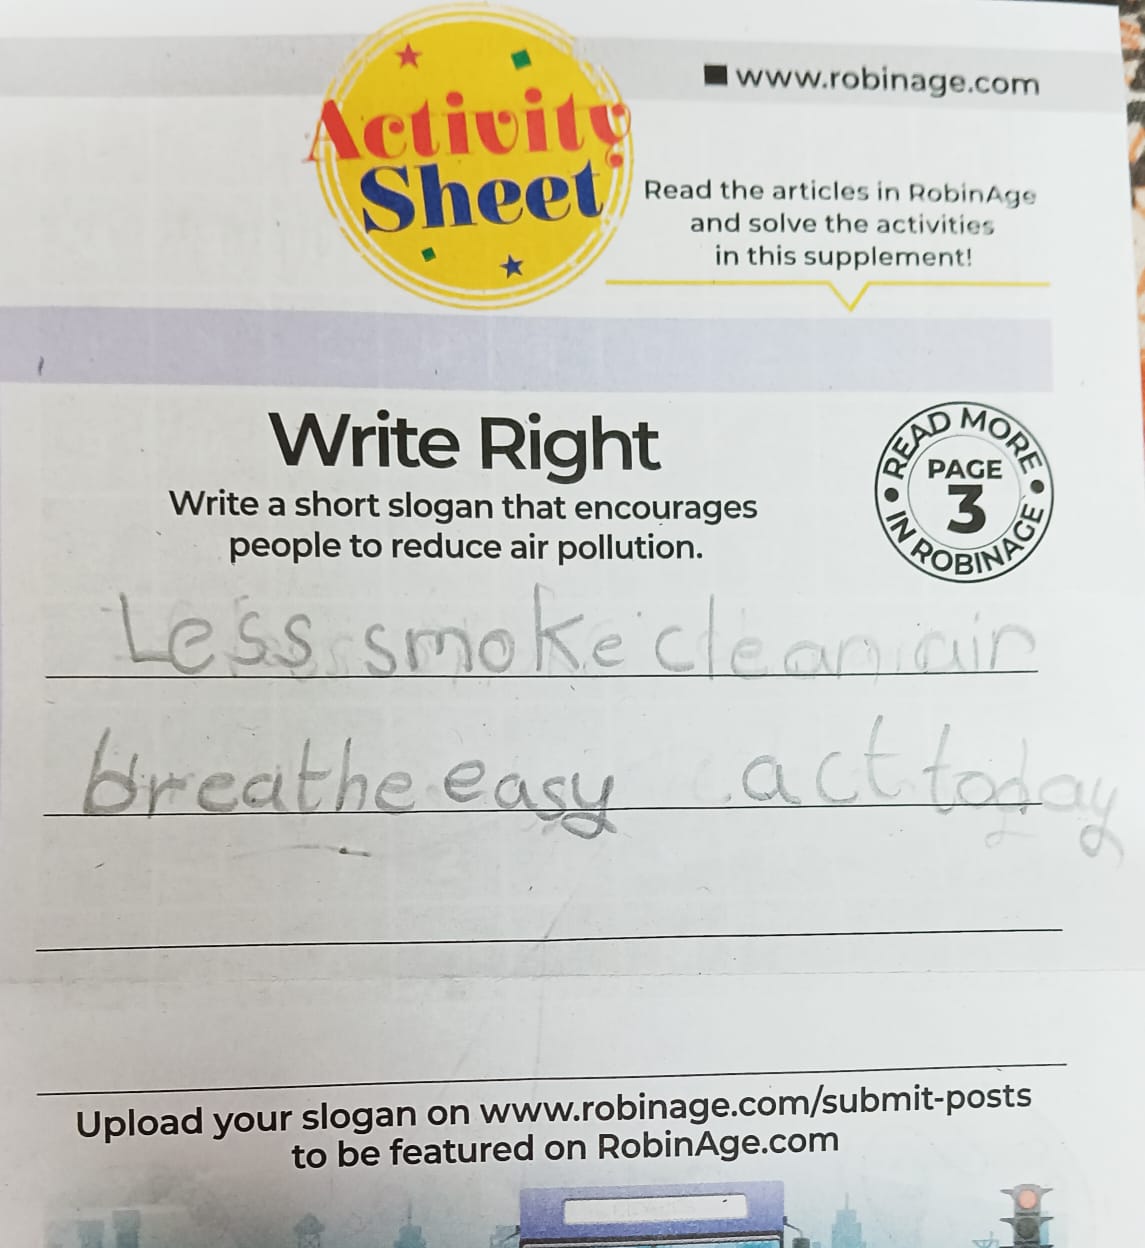 www.robinage.com
Activity
Sheet
Read the articles in RobinAge
and solve the activities
in this supplement!
Write Right
Write a short slogan that encourages
people to reduce air pollution.
READ MORE
PAGE
3
IN ROBINAGE
Less smoke clean air
breathe easy act today
Upload your slogan on www.robinage.com/submit-posts
to be featured on RobinAge.com